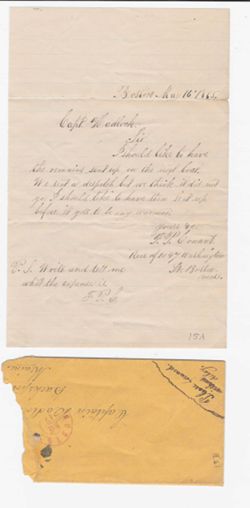 Boston May 16th 1865.
Capt. Hadlock.
Sir
I should like to have
the remains sent up on the next boat.
We sent a dispatch but we think it did not
go I should like to have him sent up
before it gets to be any warmer
Yours &c
F. P. Conant.
Rear of No 87 Washington
St. Boston
Mass.
P. S. Write and tell me
what the expense is
F. P. C
15A
Captain Hadl
Maine